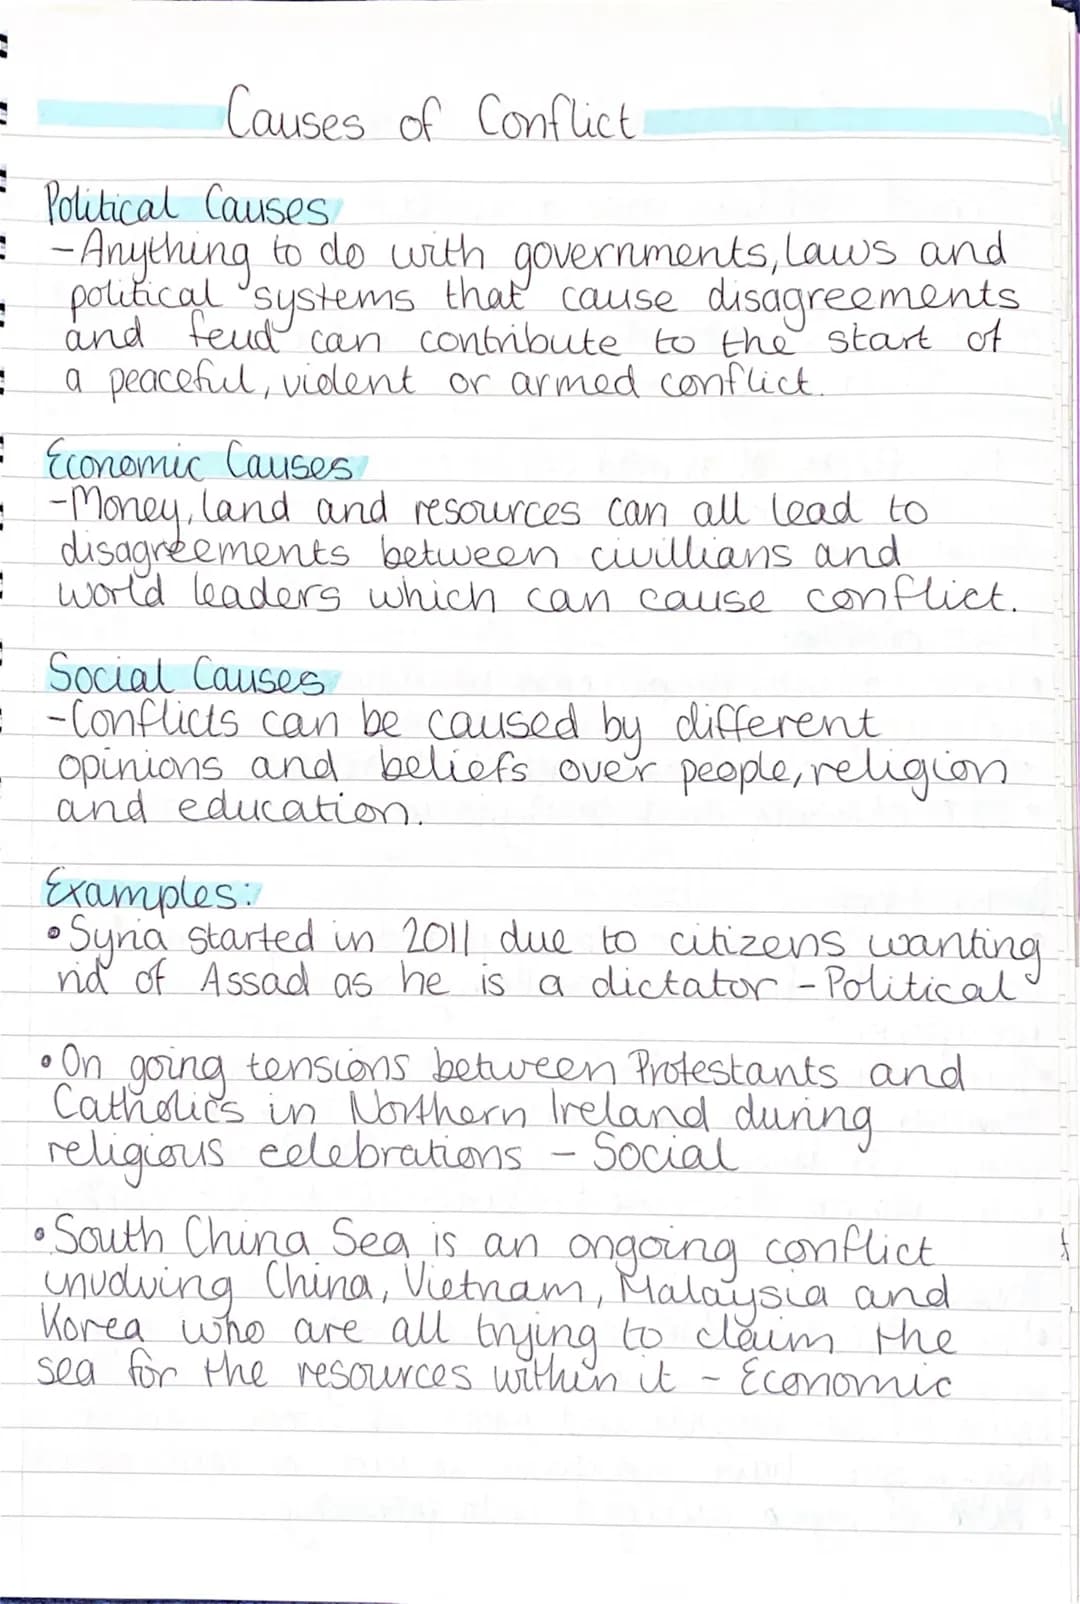 Causes of Conflict
Political Causes
-Anything to do with governments, laws and
political systems that cause disagreements
and feud can contribute to the start of
a peaceful, violent or armed conflict.
Economic Causes
-Money, land and resources can all lead to
disagreements between civillians and
world leaders which can cause conflict.
Social Causes
-Conflicts can be caused by different
opinions and beliefs over people, religion
and education.
Examples:
• Syria started in 2011 due to citizens wanting
rid of Assad as he is a dictator - Political
• On going tensions between Protestants and
Catholics in Northern Ireland during
religious celebrations - Social
• South China Sea is an ongoing conflict
involving China, Vietnam, Malaysia and
Korea who are all trying to claim the
sea for the resources within it - Economic